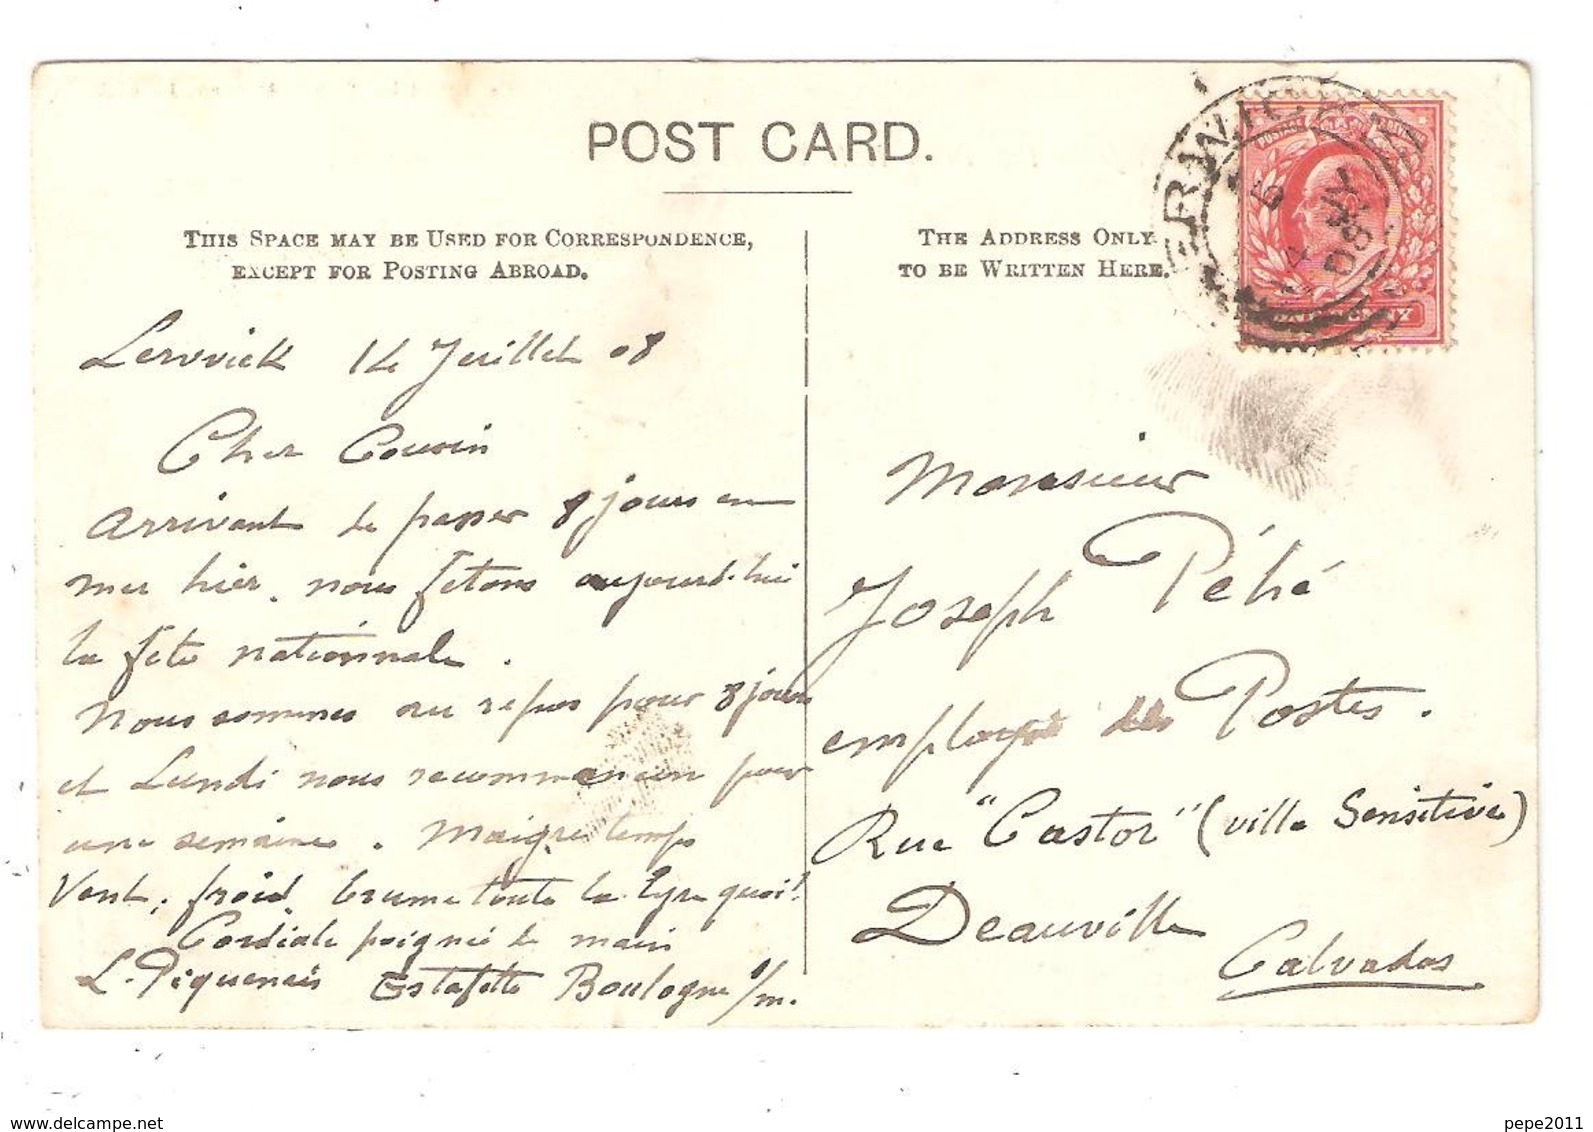 POST CARD.
THIS SPACE MAY BE USED FOR CORRESPONDENCE,
EXCEPT FOR POSTING ABROAD.
THE ADDRESS ONLY
TO BE WRITTEN HERE.
Lerwick 14 Juillet 08
Cher Cousin
Arrivant de passer 8 jours en
mer hier, nous fetons aujourd'hui
la fete nationnale.
Nous sommes au repos pour 8 jours
et Lundi nous recommencons pour
une semaine. Maigre temps
Vent, froid, brume toute la lyre quoi!
Cordiale poignée de main
L. Piquenais Estafette Boulogne s/m.
Monsieur
Joseph Péhé
employé des Postes.
Rue "Castor" (ville Sensitive)
Deauville
Calvados
delcampe.net
pepe2011